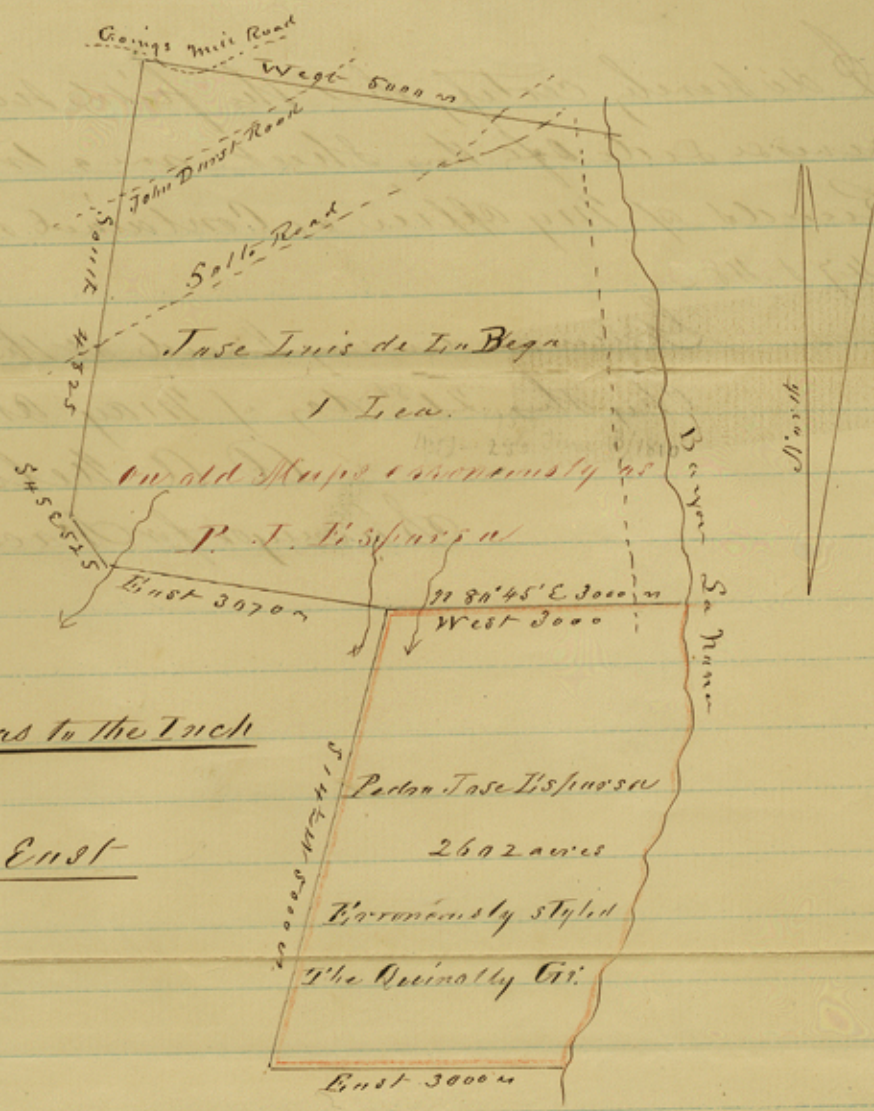 Goings Mill Road
West 5000 v
John Durst Road
South 4825
Salto Road
Jose Luis de La Bega
1 Lea.
on old Maps erroneously as
P. J. Esparsa
S 25 E 545
East 3070 v
N 80° 45' E 3000 v
West 3000
Bayou La Nana
as to the Inch
East
S 14 W 5000 v
Pedro Jose Esparsa
2602 acres
Erroneously styled
The Quinalty Gr.
East 3000 v